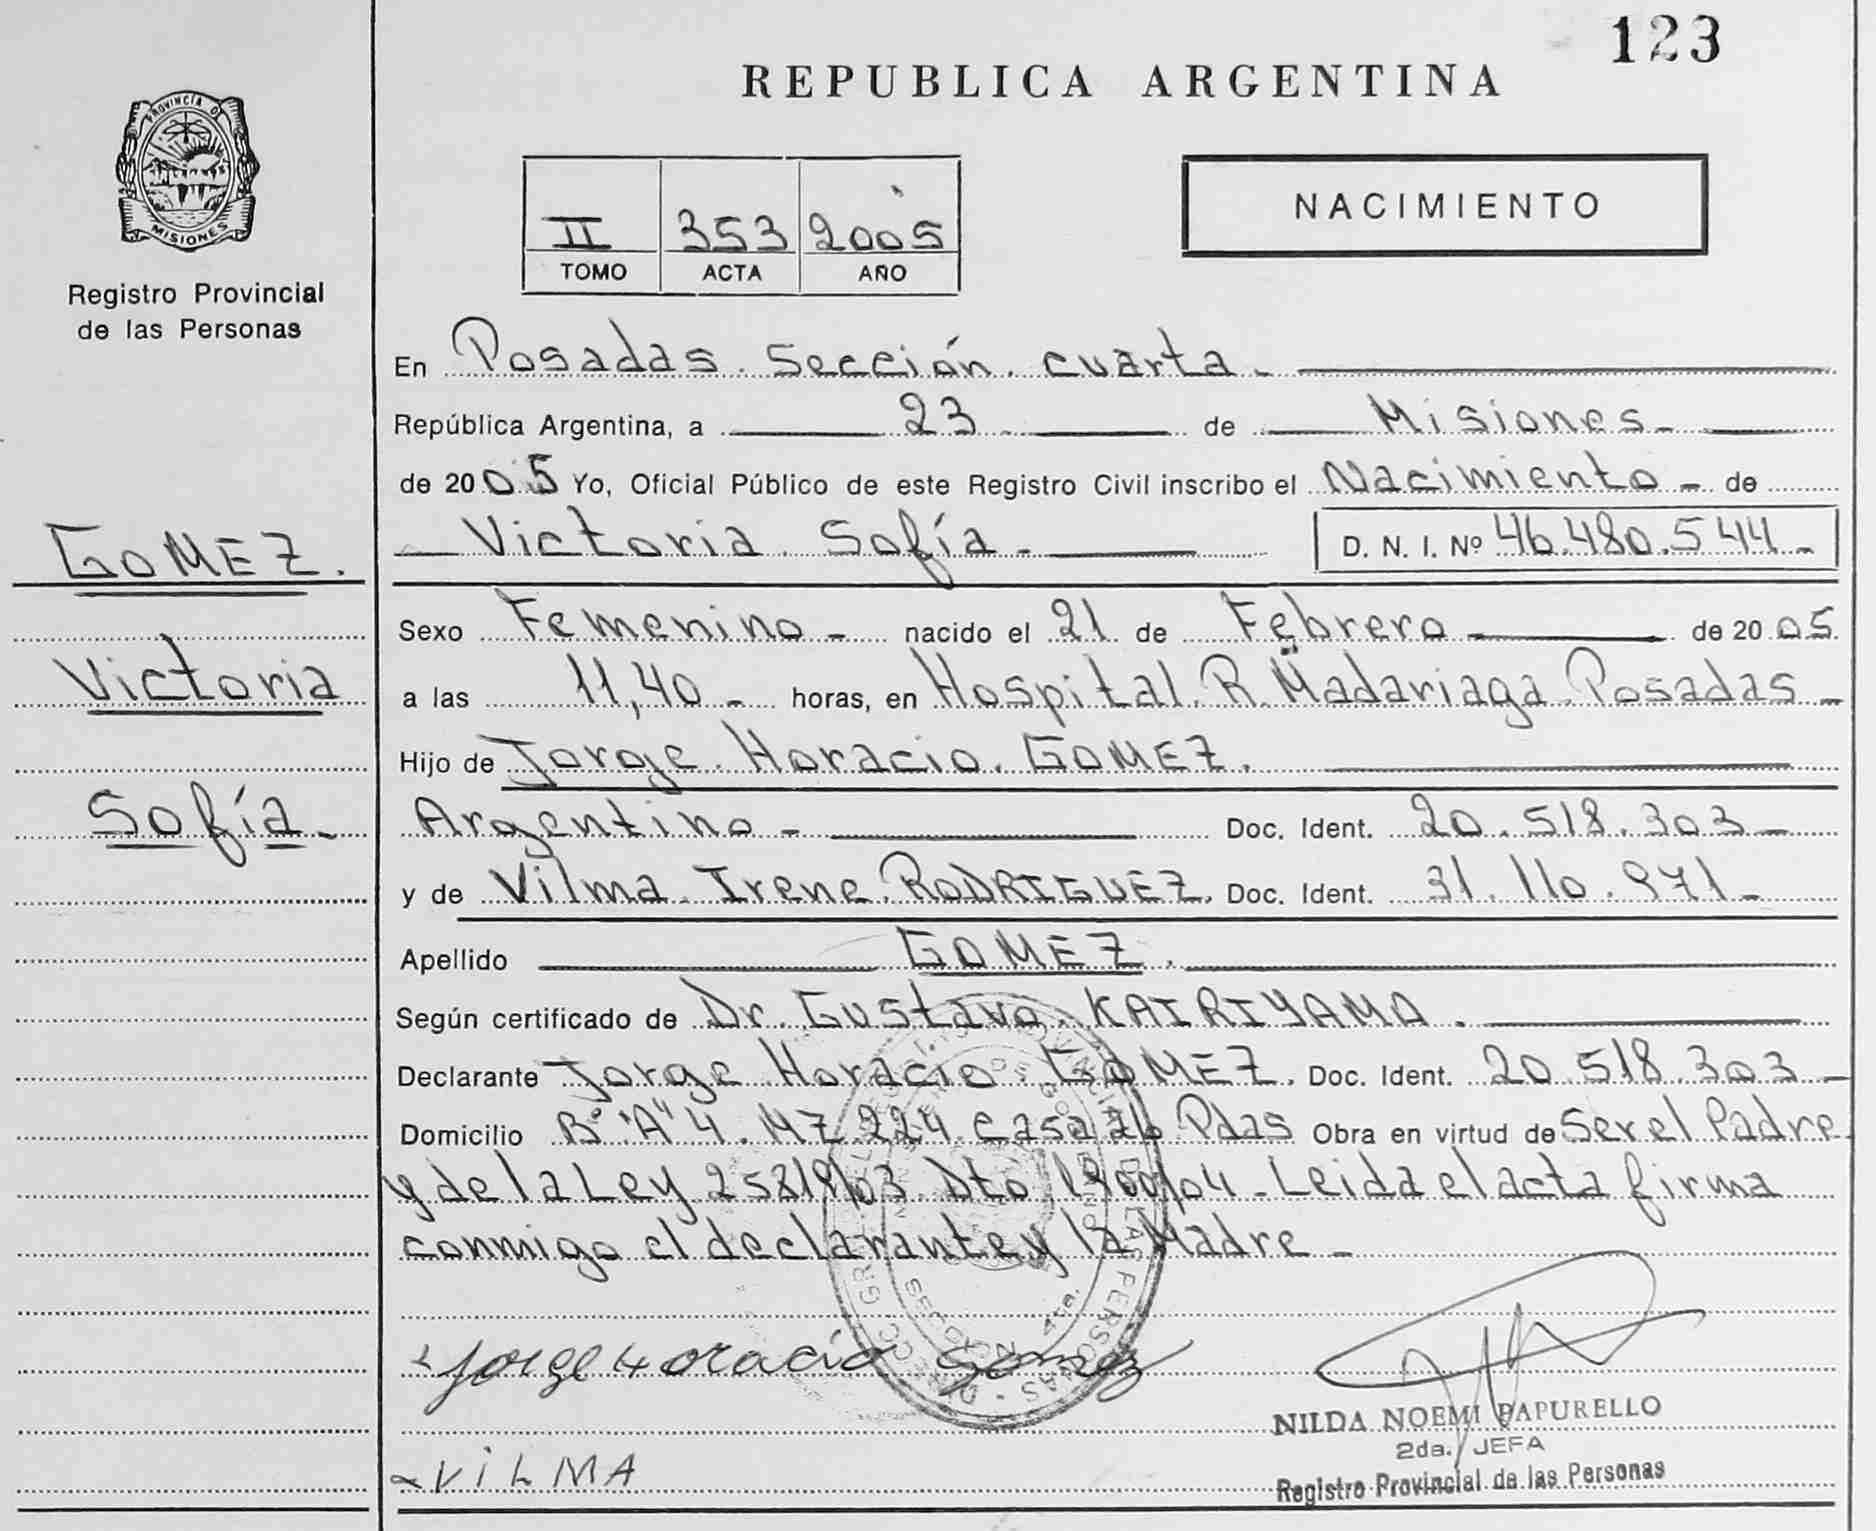 123
REPUBLICA ARGENTINA
PROVINCIA DE
MISIONES
Registro Provincial
de las Personas
II 353 2005
TOMO ACTA AÑO
NACIMIENTO
En Posadas. Sección. cuarta.
República Argentina, a 23 de Misiones
de 2005 Yo, Oficial Público de este Registro Civil inscribo el Nacimiento - de
Victoria Sofía - D. N. I. Nº 46.480.544 -
GOMEZ.
Victoria
Sofía -
Sexo Femenino - nacido el 21 de Febrero de 2005
a las 11,40 - horas, en Hospital R. Madariaga Posadas -
Hijo de Jorge Horacio GOMEZ.
Argentino - Doc. Ident. 20.518.303 -
y de Vilma Irene RODRIGUEZ. Doc. Ident. 31.110.971 -
Apellido GOMEZ.
Según certificado de Dr. Gustavo KAIRIYAMA.
Declarante Jorge Horacio GOMEZ. Doc. Ident. 20.518.303 -
Domicilio Bº "A" 4. MZ 224 casa 26 Pdas Obra en virtud de Ser el Padre
y de la Ley 25819/03 Dto 1900/04 - Leida el acta firma
conmigo el declarante y la Madre -
SECCION 4ta.
Jorge Horacio Gomez
VILMA
NILDA NOEMI PAPURELLO
2da. JEFA
Registro Provincial de las Personas